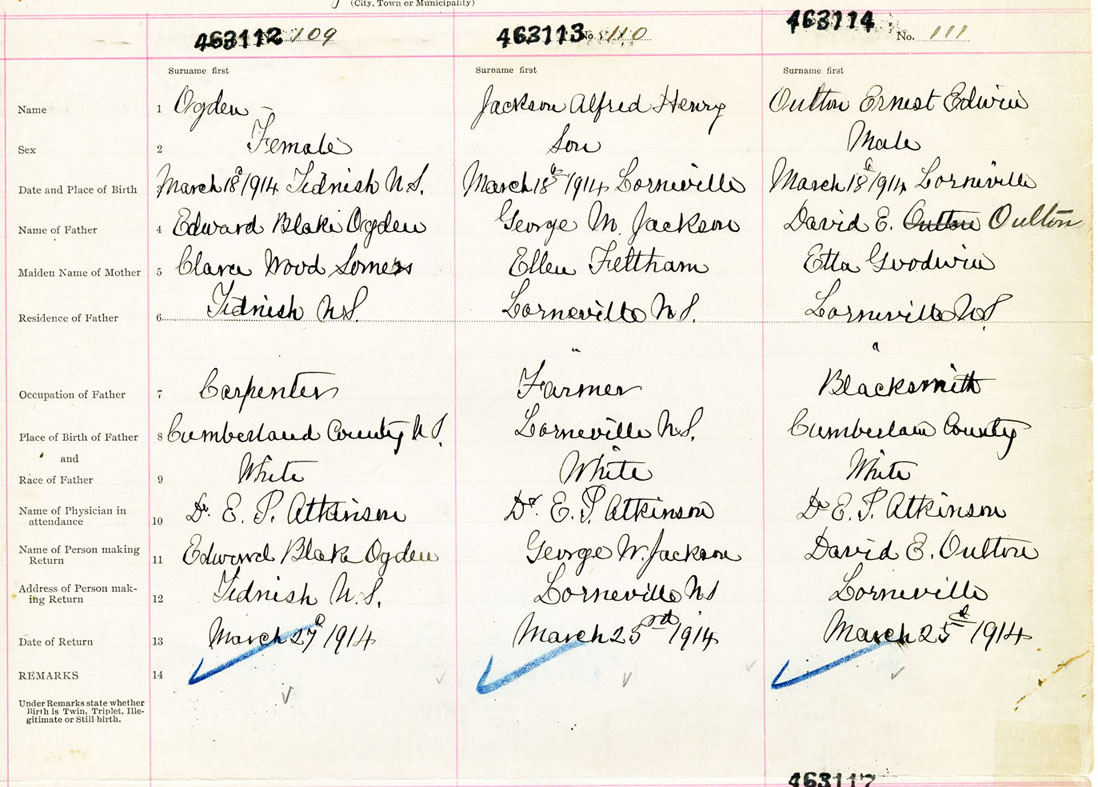 (City, Town or Municipality)
463112 109 463113 No. 110 463114 No. 111
Surname first Surname first Surname first
Name 1 Ogden — Jackson Alfred Henry Oulton Ernest Edwin
Sex 2 Female Son Male
Date and Place of Birth 3 March 18th 1914 Tidnish N.S. March 18th 1914 Lorneville March 18th 1914 Lorneville
Name of Father 4 Edward Blake Ogden George W. Jackson David E. Oulton Oulton
Maiden Name of Mother 5 Clara Wood Somers Ellen Feltham Etta Goodwin
Residence of Father 6 Tidnish N.S. Lorneville N.S. Lorneville N.S.
Occupation of Father 7 Carpenter Farmer Blacksmith
Place of Birth of Father 8 Cumberland County N.S. Lorneville N.S. Cumberlan County
and
Race of Father 9 White White White
Name of Physician in
attendance 10 Dr. E. P. Atkinson Dr. E. P. Atkinson Dr E. P. Atkinson
Name of Person making
Return 11 Edward Blake Ogden George W. Jackson David E. Oulton
Address of Person mak-
ing Return 12 Tidnish N.S. Lorneville NS Lorneville
Date of Return 13 March 27th 1914 March 25rd 1914 March 25th 1914
REMARKS 14
Under Remarks state whether
Birth is Twin, Triplet, Ille-
gitimate or Still birth.
463117